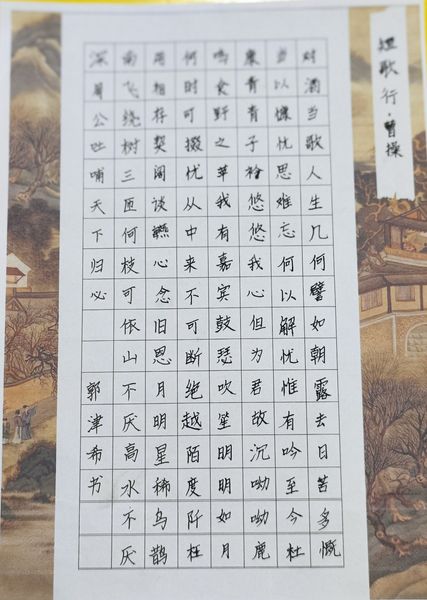 短歌行·曹操
对酒当歌人生几何譬如朝露去日苦多慨
当以慷忧思难忘何以解忧惟有吟至今杜
康青青子衿悠悠我心但为君故沉呦呦鹿
鸣食野之苹我有嘉宾鼓瑟吹笙明明如月
何时可掇忧从中来不可断绝越陌度阡枉
用相存契阔谈讌心念旧恩月明星稀乌鹊
南飞绕树三匝何枝可依山不厌高水不厌
深周公吐哺天下归心
郭津希书